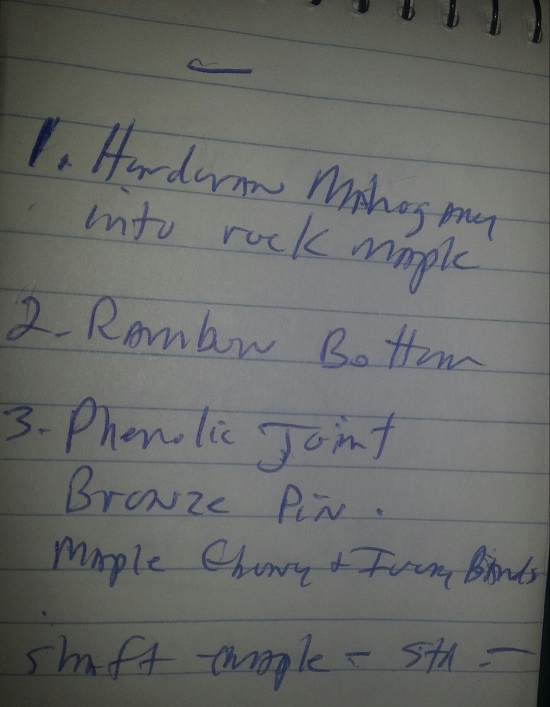 1. Honduran Mahogany
into rock maple
2- Rambow Bottom
3- Phenolic Joint
Bronze Pin.
Maple Ebony + Ivory Bands
shaft maple - std -